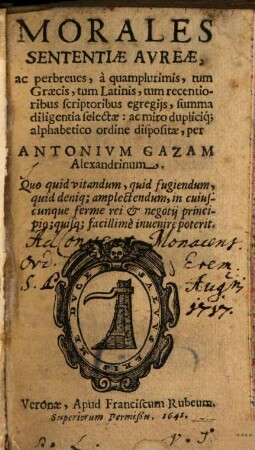 MORALES
SENTENTIÆ AVREÆ,
ac perbreues, à quamplurimis, tum
Græcis, tum Latinis, tum recentio-
ribus scriptoribus egregijs, summa
diligentia selectæ: ac miro dupliciq;
alphabetico ordine dispositæ, per
ANTONIVM GAZAM
Alexandrinum.
Quo quid vitandum, quid fugiendum,
quid deniq; amplectendum, in cuius-
cunque ferme rei & negotij princi-
pio; quisq; facillimè inuenire poterit.
Ad Conuent. Monacens.
Ord. Erem.
S. Augn
1717.
DVCE SALVVS ERIS ME
Veronæ, Apud Franciscum Rubeum.
Superiorum Permissu. 1641.